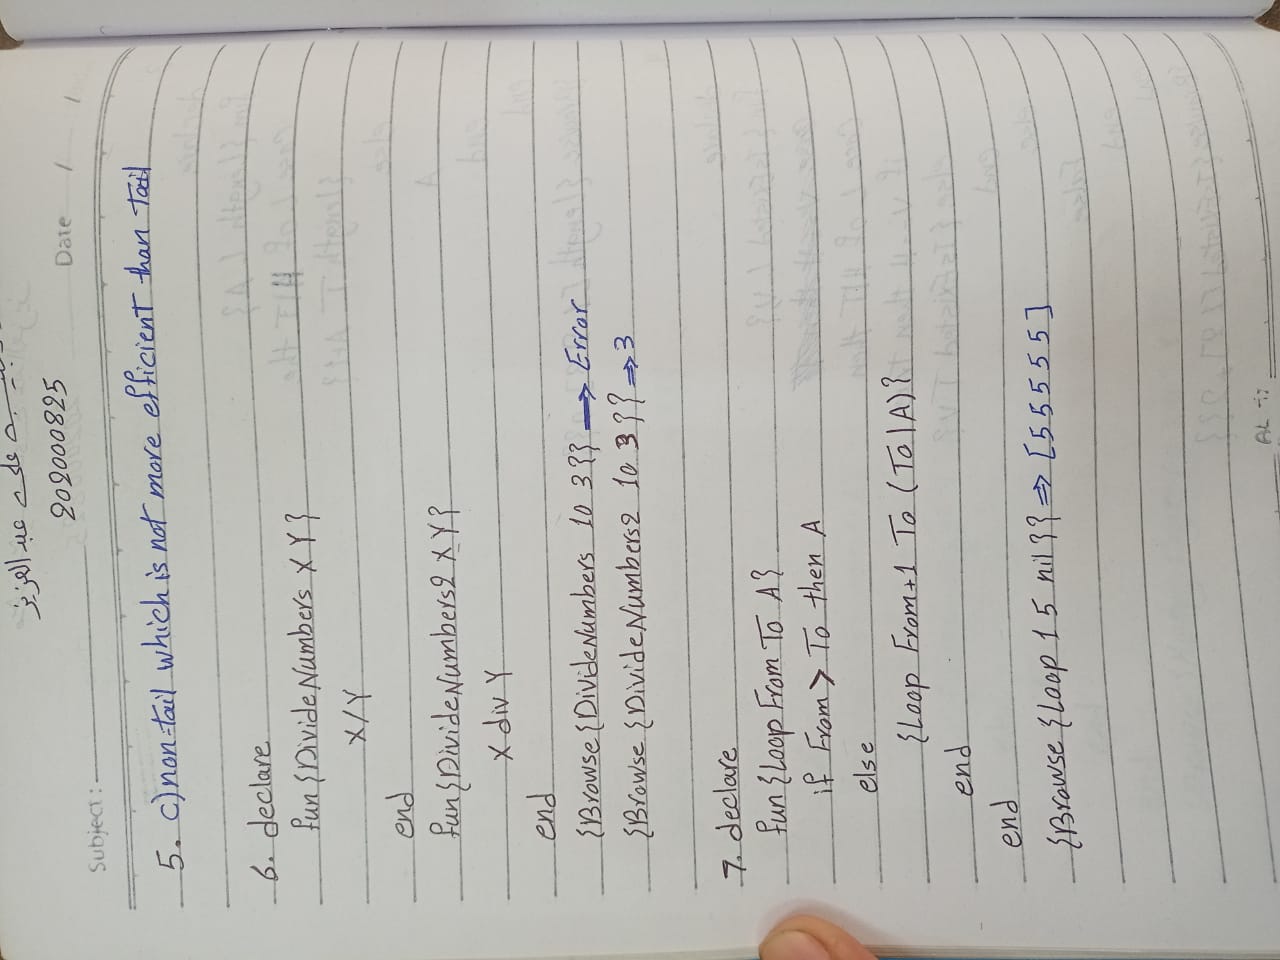 عبد العزيز
202000825
Subject:
Date / /
5. c) non-tail which is not more efficient than tail
6. declare
fun {DivideNumbers X Y}
X/Y
end
fun {DivideNumbers2 X Y}
X div Y
end
{Browse {DivideNumbers 10 3}} → Error
{Browse {DivideNumbers2 10 3}} ⇒ 3
7. declare
fun {Loop From To A}
if From > To then A
else
{Loop From+1 To (To|A)}
end
end
{Browse {Loop 1 5 nil}} ⇒ [5 5 5 5 5]